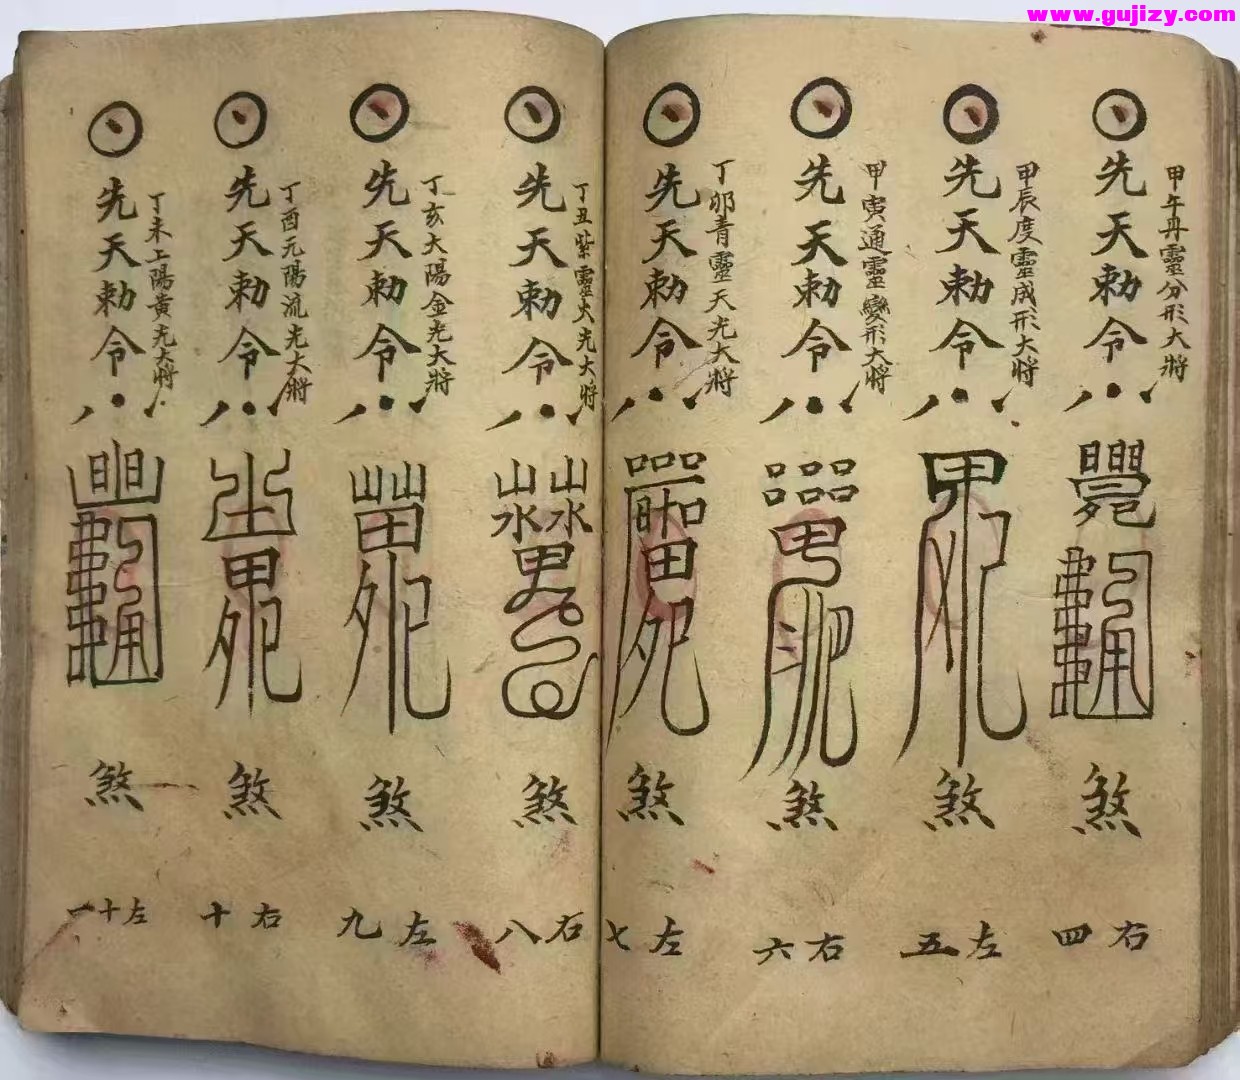 www.gujizy.com
甲午丹靈分形大将
先天勅令
煞
右四
甲辰度靈成形大将
先天勅令
煞
左五
甲寅通靈變形大将
先天勅令
煞
右六
丁卯青靈天光大將
先天勅令
煞
左七
丁丑紫靈火光大將
先天勅令
煞
右八
丁亥太陽金光大將
先天勅令
煞
左九
丁酉元陽流光大將
先天勅令
煞
右十
丁未上陽黄光大將
先天勅令
煞
左十一